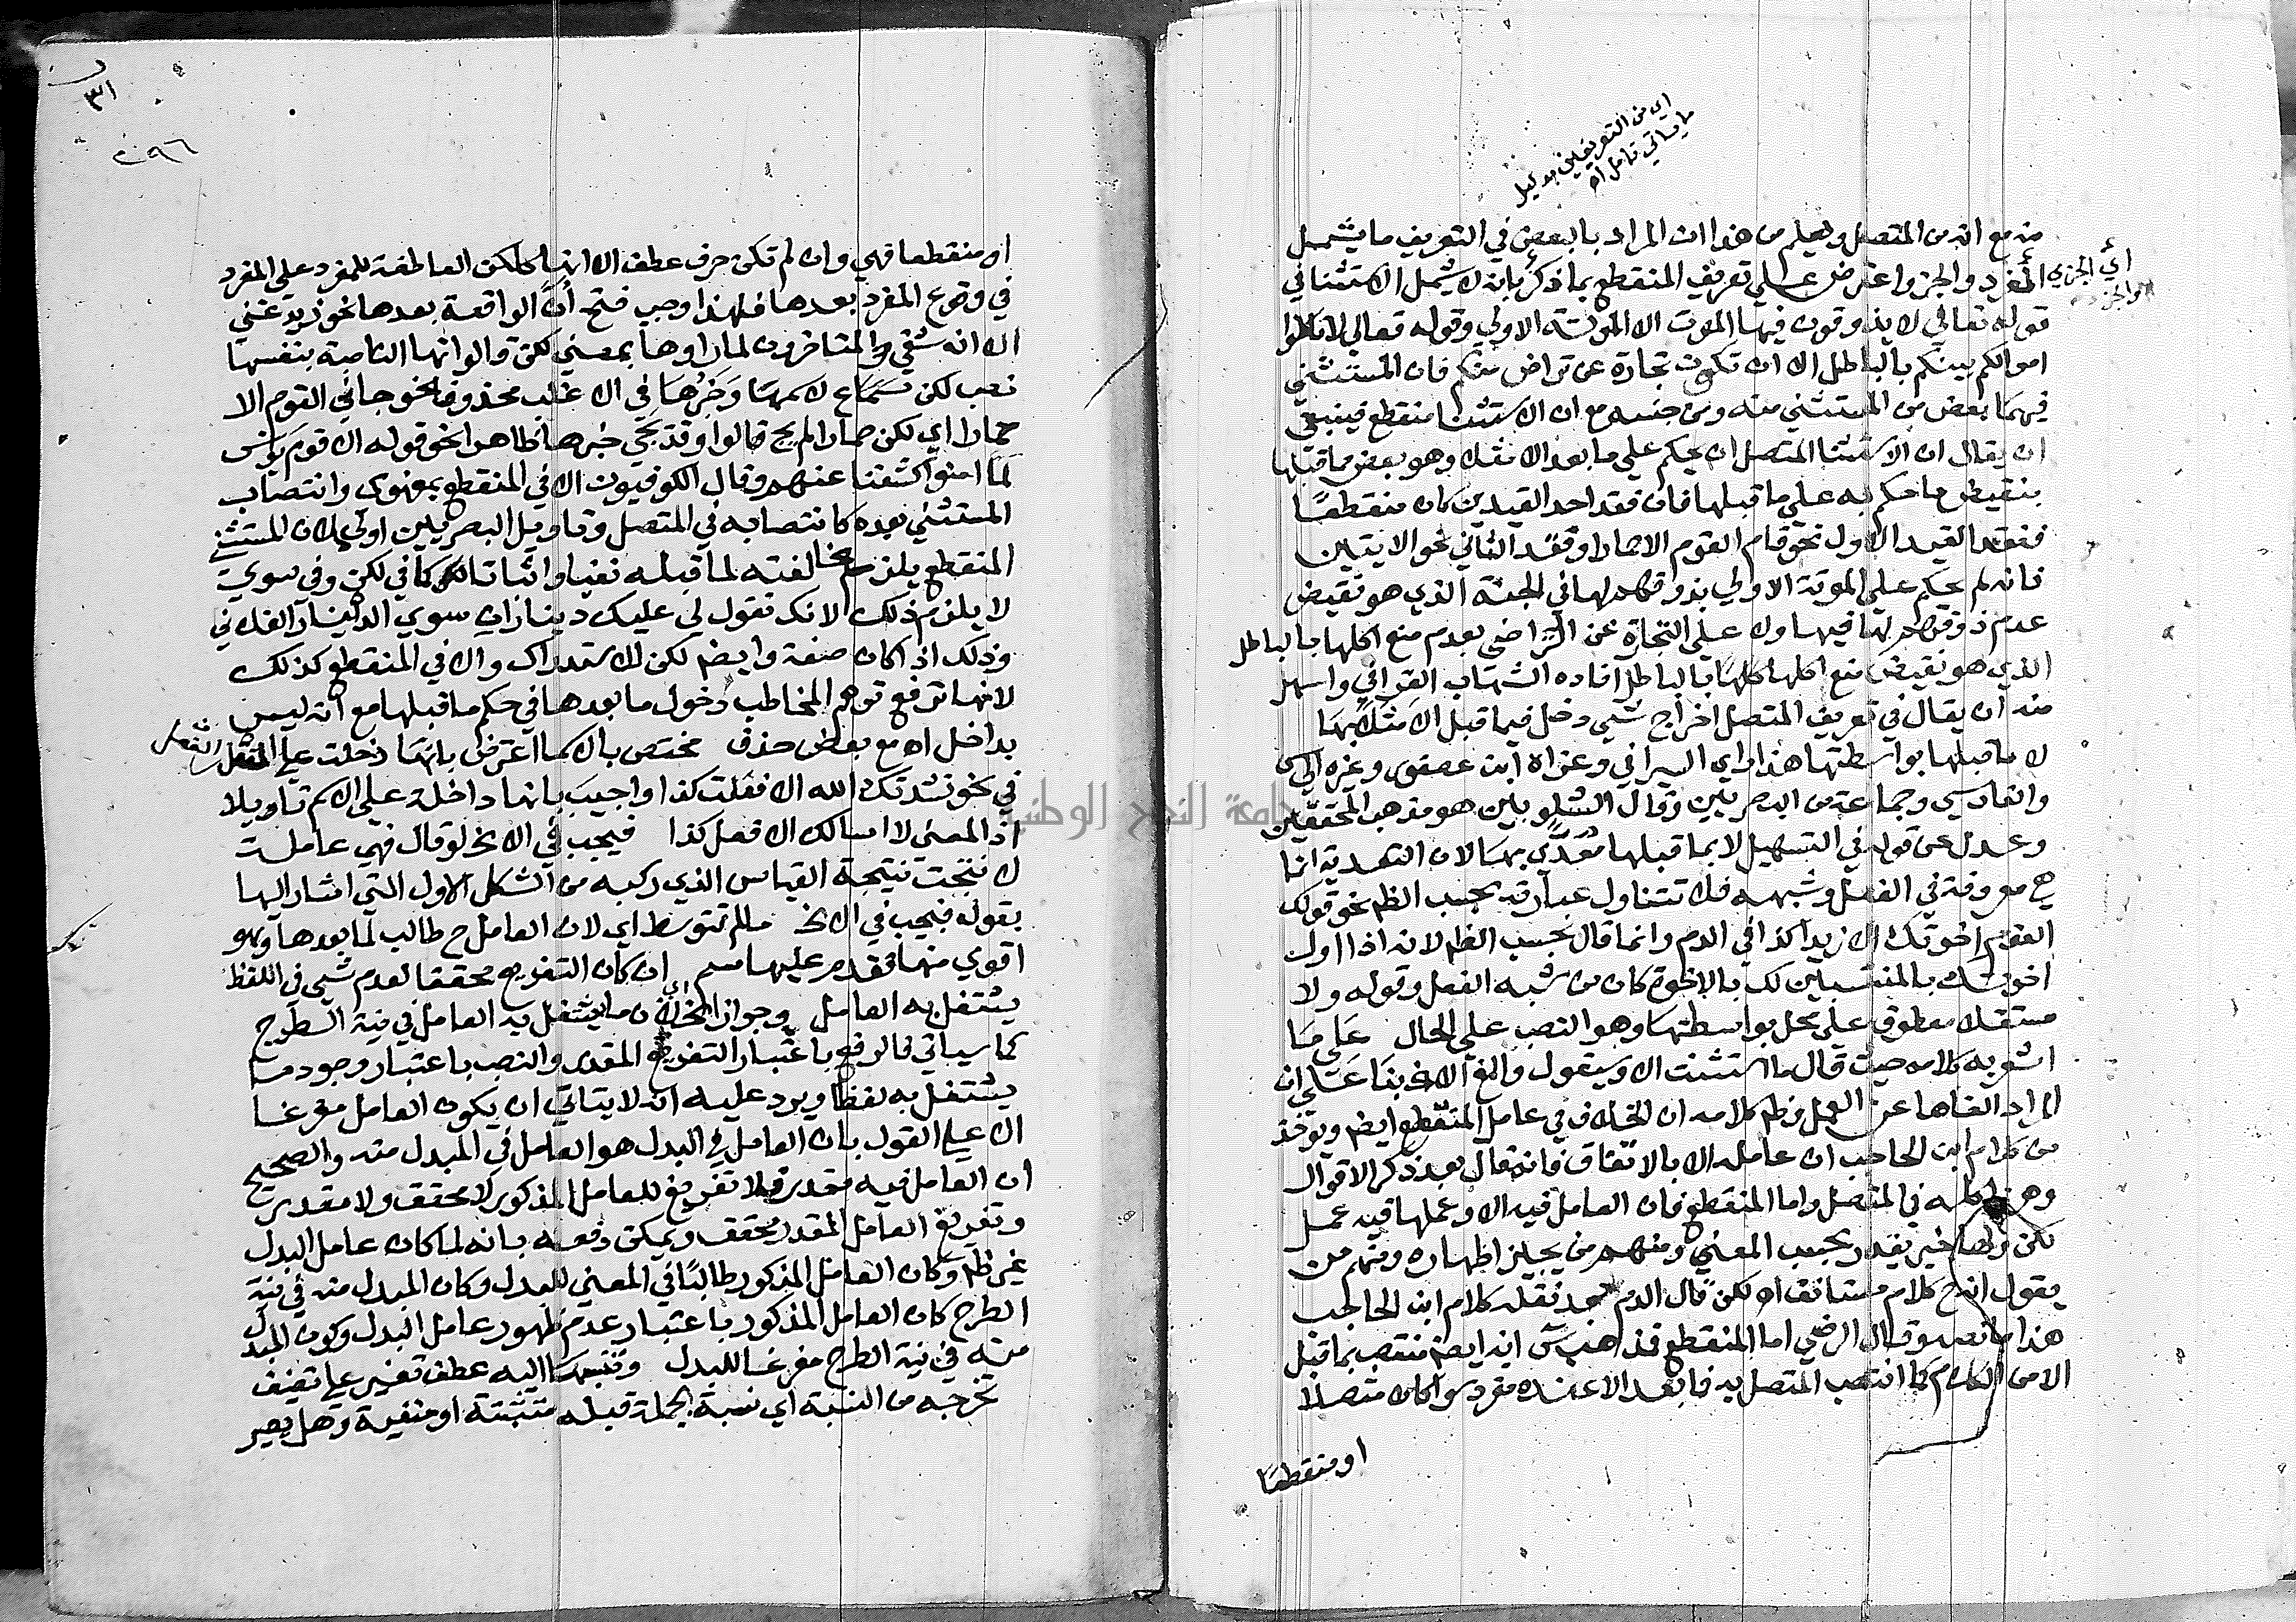 اي من التعريفين بدليل
ما ياتي تامل اه
منه مع انه من المتصل ويعلم من هذا ان المراد بالبعض في التعريف ما يشمل
اي الجزئي والجزء
المفرد والجزء واعترض علي تعريف المنقطع بما ذكر بانه لا يشمل الاستثنا في
قوله تعالي لا يذوقون فيها الموت الا الموتة الاولي وقوله تعالي لا تاكلوا
اموالكم بينكم بالباطل الا ان تكون تجارة عن تراض منكم فان المستثني
فيهما بعض من المستثني منه ومن جنسه مع ان الاستثنا منقطع فينبغي
ان يقال ان الاستثنا المتصل ان يحكم علي ما بعد الا مثلا وهو بعض مما قبلها
بنقيض ما حكم به علي ما قبلها فان فقد احد القيدين كان منقطعا
ففقد القيد الاول نحو قام القوم الا حمارا وفقد الثاني نحو الايتين
فانه لم يحكم علي الموتة الاولي بذوقهم لها في الجنة الذي هو نقيض
عدم ذوقهم لها فيها ولا علي التجارة عن التراضي بعدم منع اكلها بالباطل
الذي هو نقيض منع اكلها بالباطل افاده الشهاب القرافي واسهل
منه ان يقال في تعريف المتصل اخراج شيء دخل فيما قبل الا مثلا بها
لا ما قبلها بواسطتها هذا راي السيرافي وعزاه ابن عصفور وغيره الي س
والفارسي وجماعة من البصريين وقال الشلوبين هو مذهب المحققين
وعدل عن قوله في التسهيل لا بما قبلها معدي بها لان التعدية انما
هي معروفة في الفعل وشبهه فلا تتناول عبارته بحسب الظم نحو قولك
القوم اخوتك الا زيدا كذا في الدم وانما قال بحسب الظم لانه اذا اول
اخوتك بالمنتسبين لك بالاخوة كان من شبه الفعل وقوله ولا
مستقلا معطوف علي محل بواسطتها وهو النصب علي الحال علي ما
اشعر به كلامه حيث قال ما استثنت الا وسيقول والغ الا الخ بنا علي ان
المراد الغاها عن العمل وظم كلامه ان الخلاف في عامل المنقطع ايضم ويوخذ
من كلام ابن الحاجب ان عامله الا بالاتفاق فانه قال بعد ذكر الاقوال
وهذا كله في المتصل واما المنقطع فان العامل فيه الا وعملها فيه عمل
لكن ولها خبر يقدر بحسب المعني ومنهم من يجيز اظهاره ومنهم من
يقول انه ح كلام مستانف اه لكن قال الدم بعد نقله كلام ابن الحاجب
هذا ما نصه وقال الرضي اما المنقطع فمذهب س انه ايضم منتصب بما قبل
الا من الكلام كما انتصب المتصل به فما بعد الا عنده مفرد سوا كان متصلا
او منقطعا
٣١
او منقطعا فهي وان لم تكن حرف عطف الا انها كلكن العاطفة للمفرد علي المفرد
في وقوع المفرد بعدها فلهذا وجب فتح ان الواقعة بعدها نحو زيد غني
الا انه شقي والمتاخرون لما راوها بمعني لكن قالوا انها الناصبة بنفسها
نصب لكن للاسماء وخبرها في الاغلب محذوف نحو جاني القوم الا
حمارا اي لكن حمارا لم يجي قالوا وقد يجي خبرها ظاهرا نحو قوله الا قوم يونس
لما امنوا كشفنا عنهم وقال الكوفيون الا في المنقطع بمعني سوي وانتصاب
المستثني بعده كانتصابه في المتصل وتاويل البصريين اولي لان المستثني
المنقطع يلزم مخالفته لما قبله نفيا واثباتا كما في لكن وفي سوي
لا يلزم ذلك لانك تقول لي عليك ديناران سوي الدينار الفلاني
وذلك اذا كان صفة وايضم لكن للاستدراك والا في المنقطع كذلك
لانها ترفع توهم المخاطب دخول ما بعدها في حكم ما قبلها مع انه ليس
بداخل اه مع بعض حذف مختص بالاسما اعترض بانها دخلت علي الفعل
في نحو نشدتك الله الا فعلت كذا واجيب بانها داخلة علي الاسم تاويلا
اذ المعني لا اسالك الا فعل كذا فيجب في الا الخ لو قال فهي عاملت
لا نتجت نتيجة القياس الذي ركبه من الشكل الاول التي اشار اليها
بقوله فيجب في الا الخ ما لم تتوسط اي لان العامل ح طالب لما بعدها وهو
اقوي منها فقدم عليها مسم ان كان التفريغ محققا لعدم شيء في اللفظ
يشتغل به العامل وجواز اي لان ما يشتغل به العامل في نية الطرح
كما سياتي فالرفع باعتبار التفريغ المقدر والنصب باعتبار وجود ما
يشتغل به لفظا ويرد عليه انه لا يتاتي ان يكون العامل مفرغا
الا علي القول بان العامل في البدل هو العامل في المبدل منه والصحيح
ان العامل فيه مقدر فلا تفريغ للعامل المذكور لا محقق ولا مقدر
وتفريغ العامل المقدر محقق ويمكن دفعه بانه لما كان عامل البدل
غير ظم وكان العامل المذكور طالبا في المعني للبدل وكان المبدل منه في نية
الطرح كان العامل المذكور باعتبار عدم ظهور عامل البدل وكون المبدل
منه في نية الطرح مفرغا للبدل ونسبها اليه عطف تفسير علي
تخرجه من النسبة اي نسبة الجملة قبله مثبتة او منفية وهل يصير
جامعة النجاح الوطنية